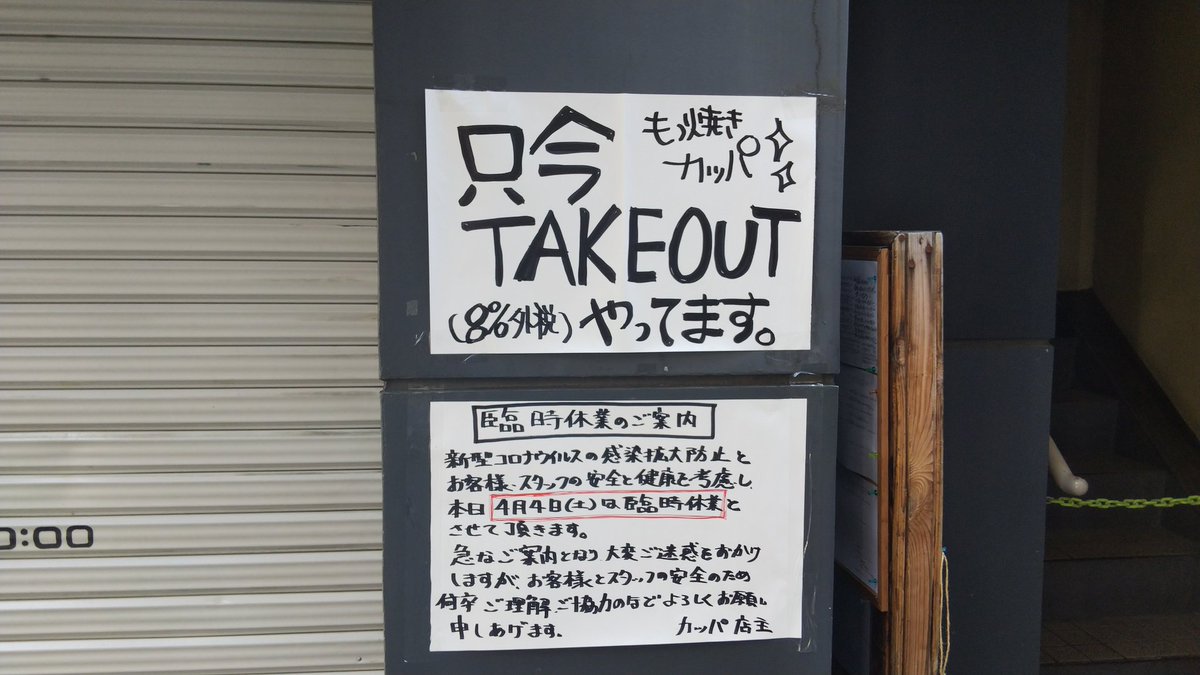 只今
もつ焼き
カッパ
TAKEOUT
(8%外税) やってます。
臨時休業のご案内
新型コロナウイルスの感染拡大防止と
お客様、スタッフの安全と健康を考慮し、
本日 4月4日(土)は臨時休業と
させて頂きます。
急なご案内となり大変ご迷惑をおかけ
しますが、お客様とスタッフの安全のため
何卒ご理解、ご協力のほどよろしくお願い
申しあげます。
カッパ 店主
0:00